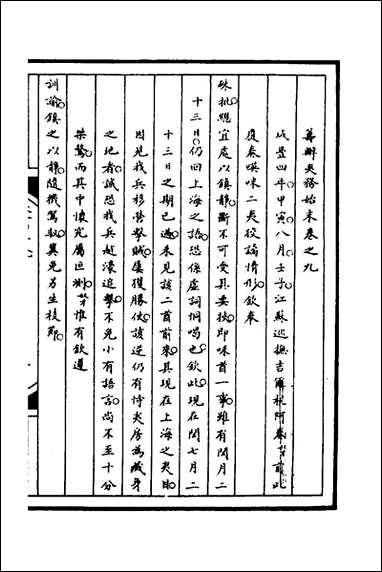 籌辦夷務始末卷之九
咸豐四年甲寅八月壬子江蘇巡撫吉爾杭阿奏竊前此
復奏𠸄咪二夷狡譎情形欽奉
硃批總宜處以鎮靜斷不可受其要挾即咪首一事雖有閏月二
十三日仍回上海之語恐係虛詞恫喝也欽此現在閏七月二
十三日之期已過未見該二酋前來其現在上海之夷目
因見我兵移營擊賊屢獲勝仗該逆仍有恃夷房為藏身
之地者誠恐我兵越濠追擊不免小有語言尚不至十分
桀驁而其中懷究屬叵測等惟有欽遵
訓諭鎮之以靜隨機駕馭冀免另生枝節